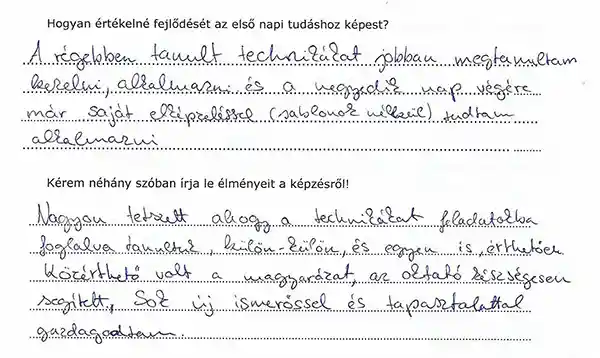 Hogyan értékelné fejlődését az első napi tudáshoz képest?
A régebben tanult technikákat jobban megtanultam
kezelni, alkalmazni és a negyedik nap végére
már saját elképzeléssel (sablonok nélkül) tudtam
alkalmazni
Kérem néhány szóban írja le élményeit a képzésről!
Nagyon tetszett ahogy a technikákat feladatokba
foglalva tanultuk, külön-külön, és egyben is, érthetően
Közérthető volt a magyarázat, az oktató készségesen
segített, Sok új ismerőssel és tapasztalattal
gazdagodtam.